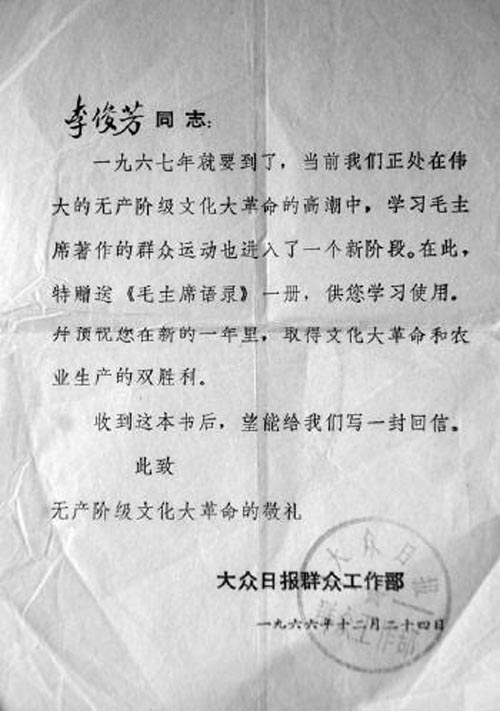 李俊芳同志：
一九六七年就要到了，当前我们正处在伟
大的无产阶级文化大革命的高潮中，学习毛主
席著作的群众运动也进入了一个新阶段。在此，
特赠送《毛主席语录》一册，供您学习使用。
并预祝您在新的一年里，取得文化大革命和农
业生产的双胜利。
收到这本书后，望能给我们写一封回信。
此致
无产阶级文化大革命的敬礼
大众日报群众工作部
一九六六年十二月二十四日
大众日报
群众工作部